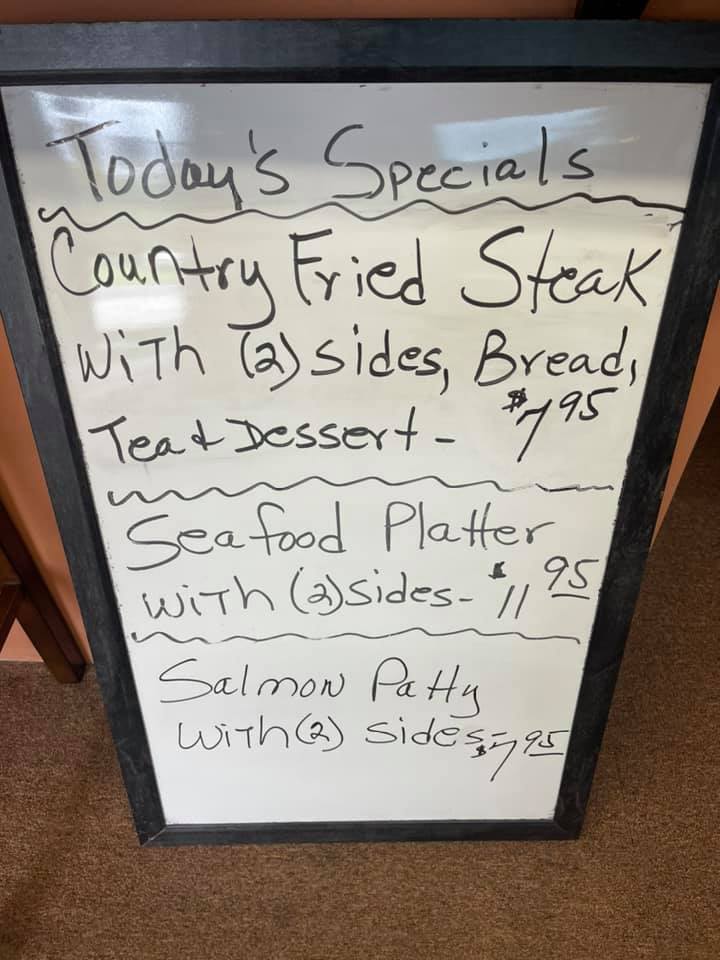 Today's Specials
Country Fried Steak
With (2) sides, Bread,
Tea & Dessert - $7.95
Seafood Platter
with (2) sides - $11.95
Salmon Patty
with (2) sides - $7.95